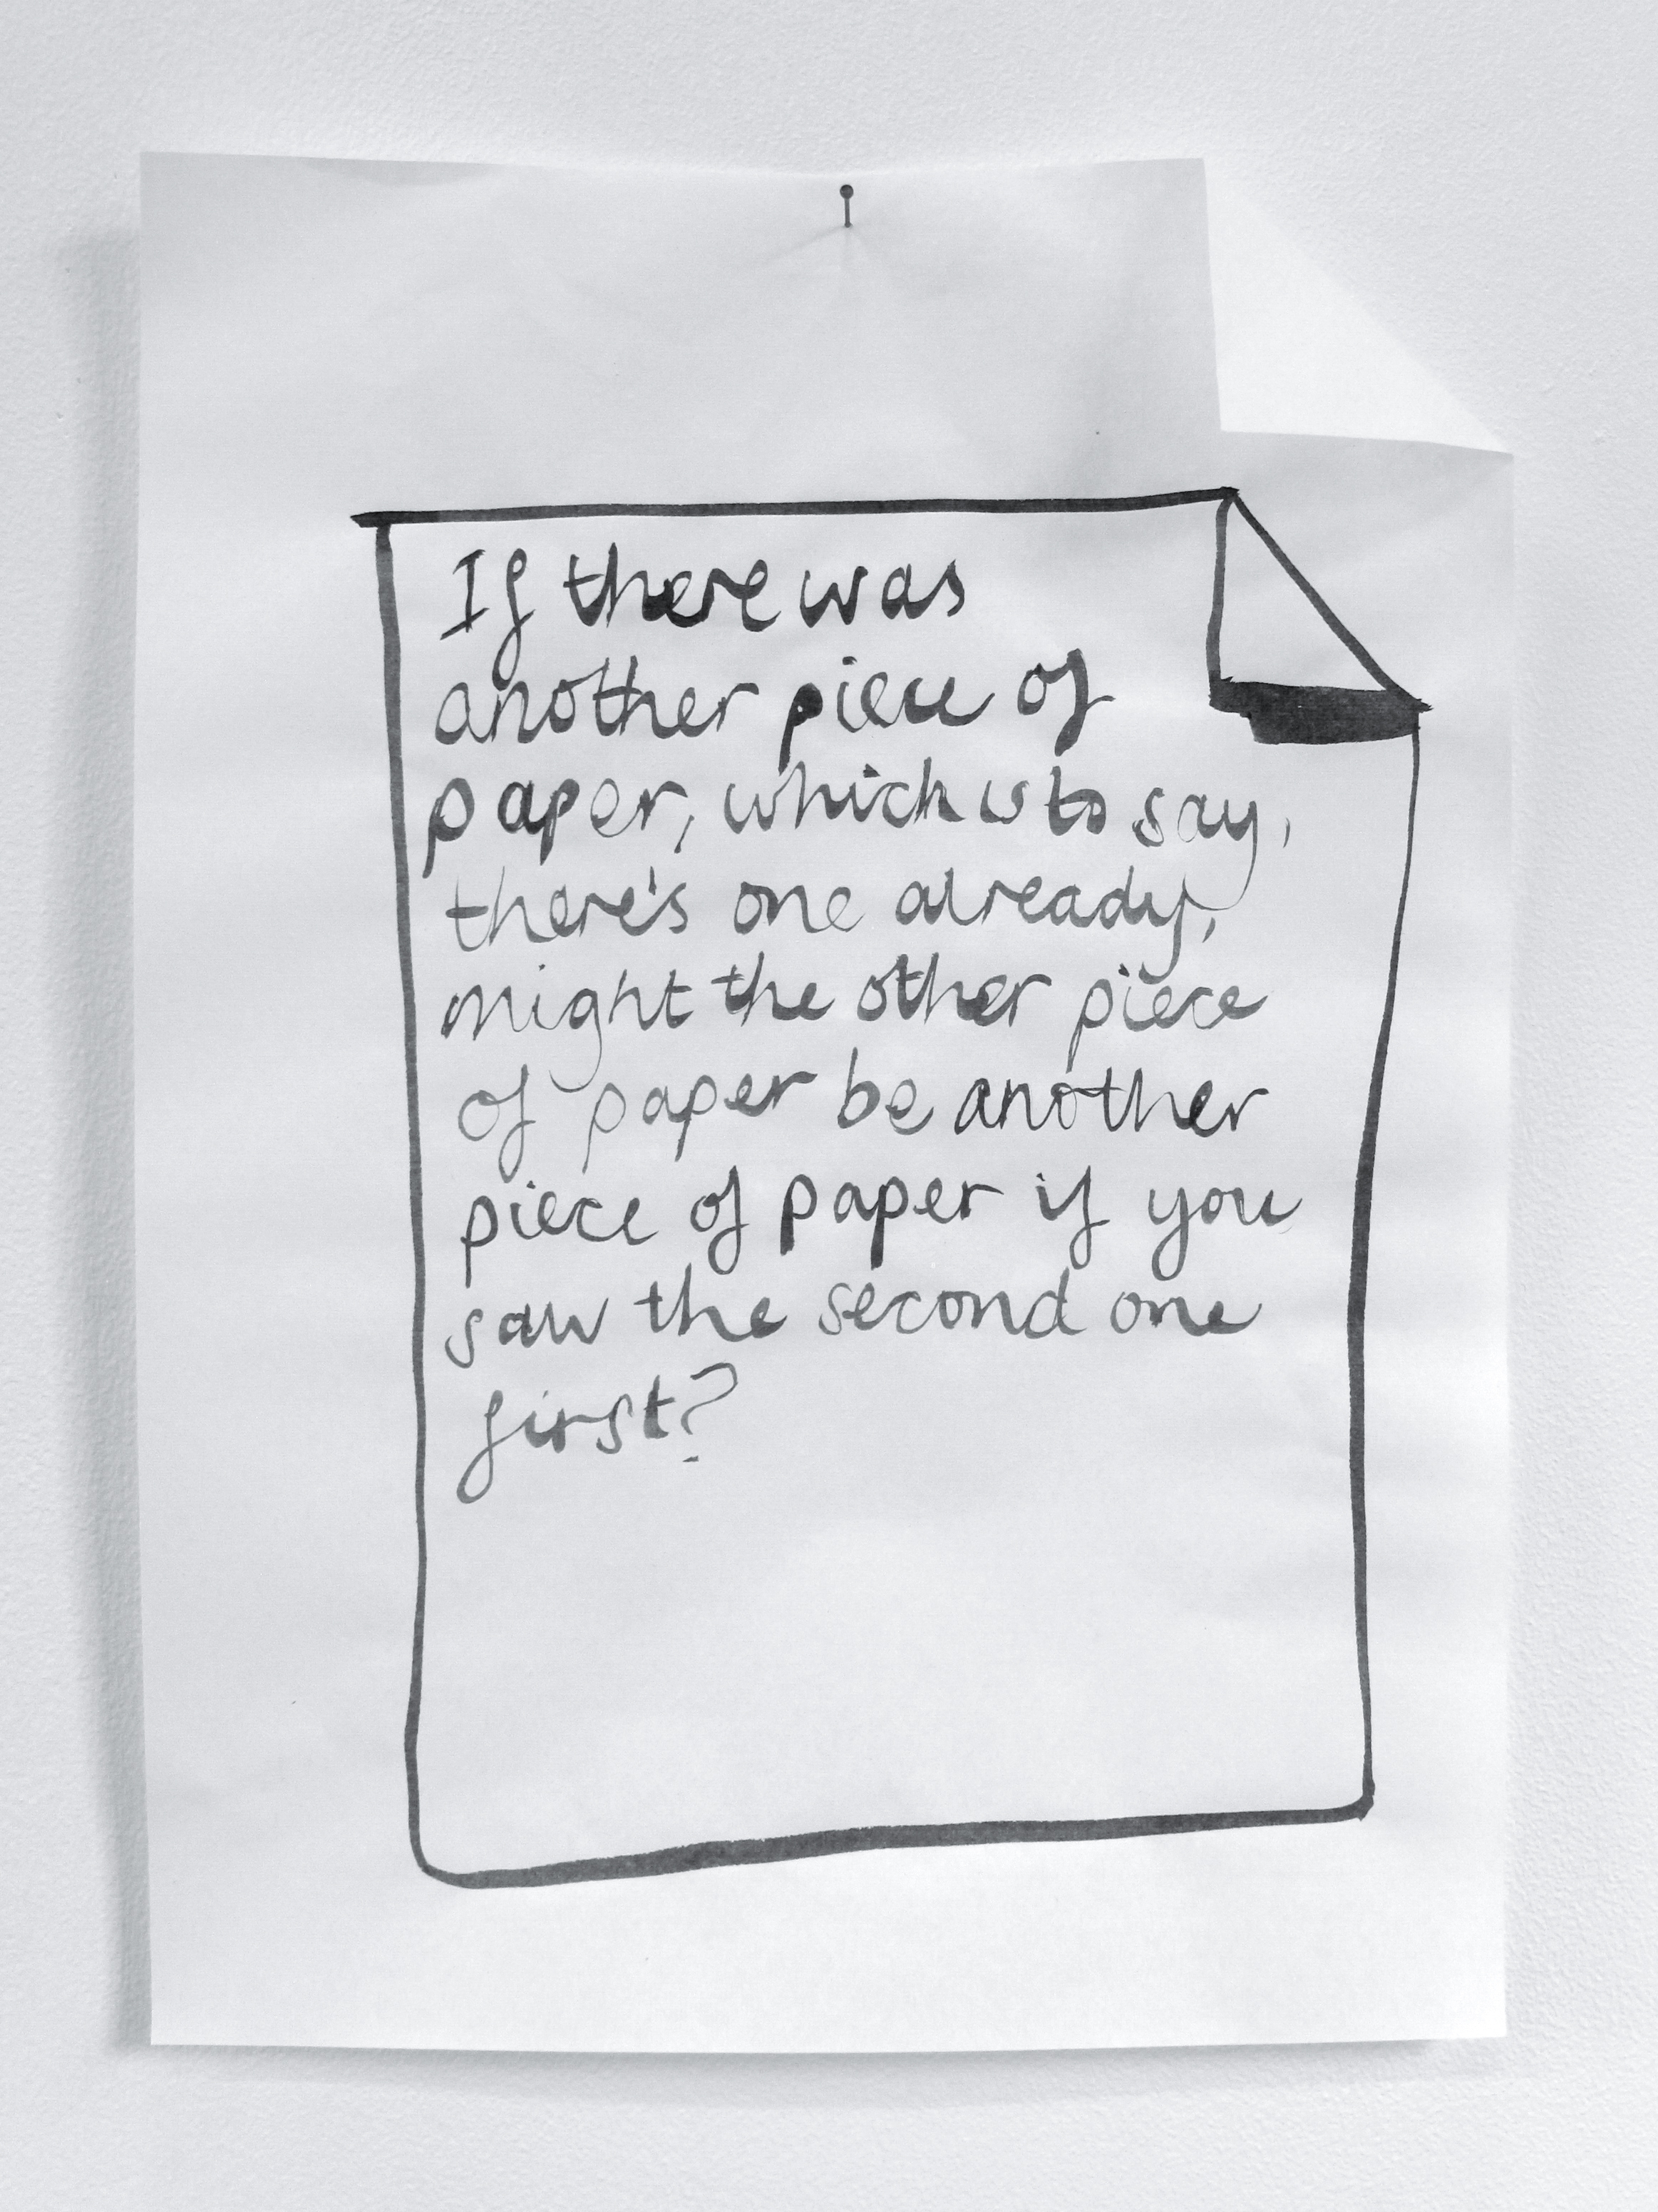 If there was
another piece of
paper, which is to say,
there's one already,
might the other piece
of paper be another
piece of paper if you
saw the second one
first?